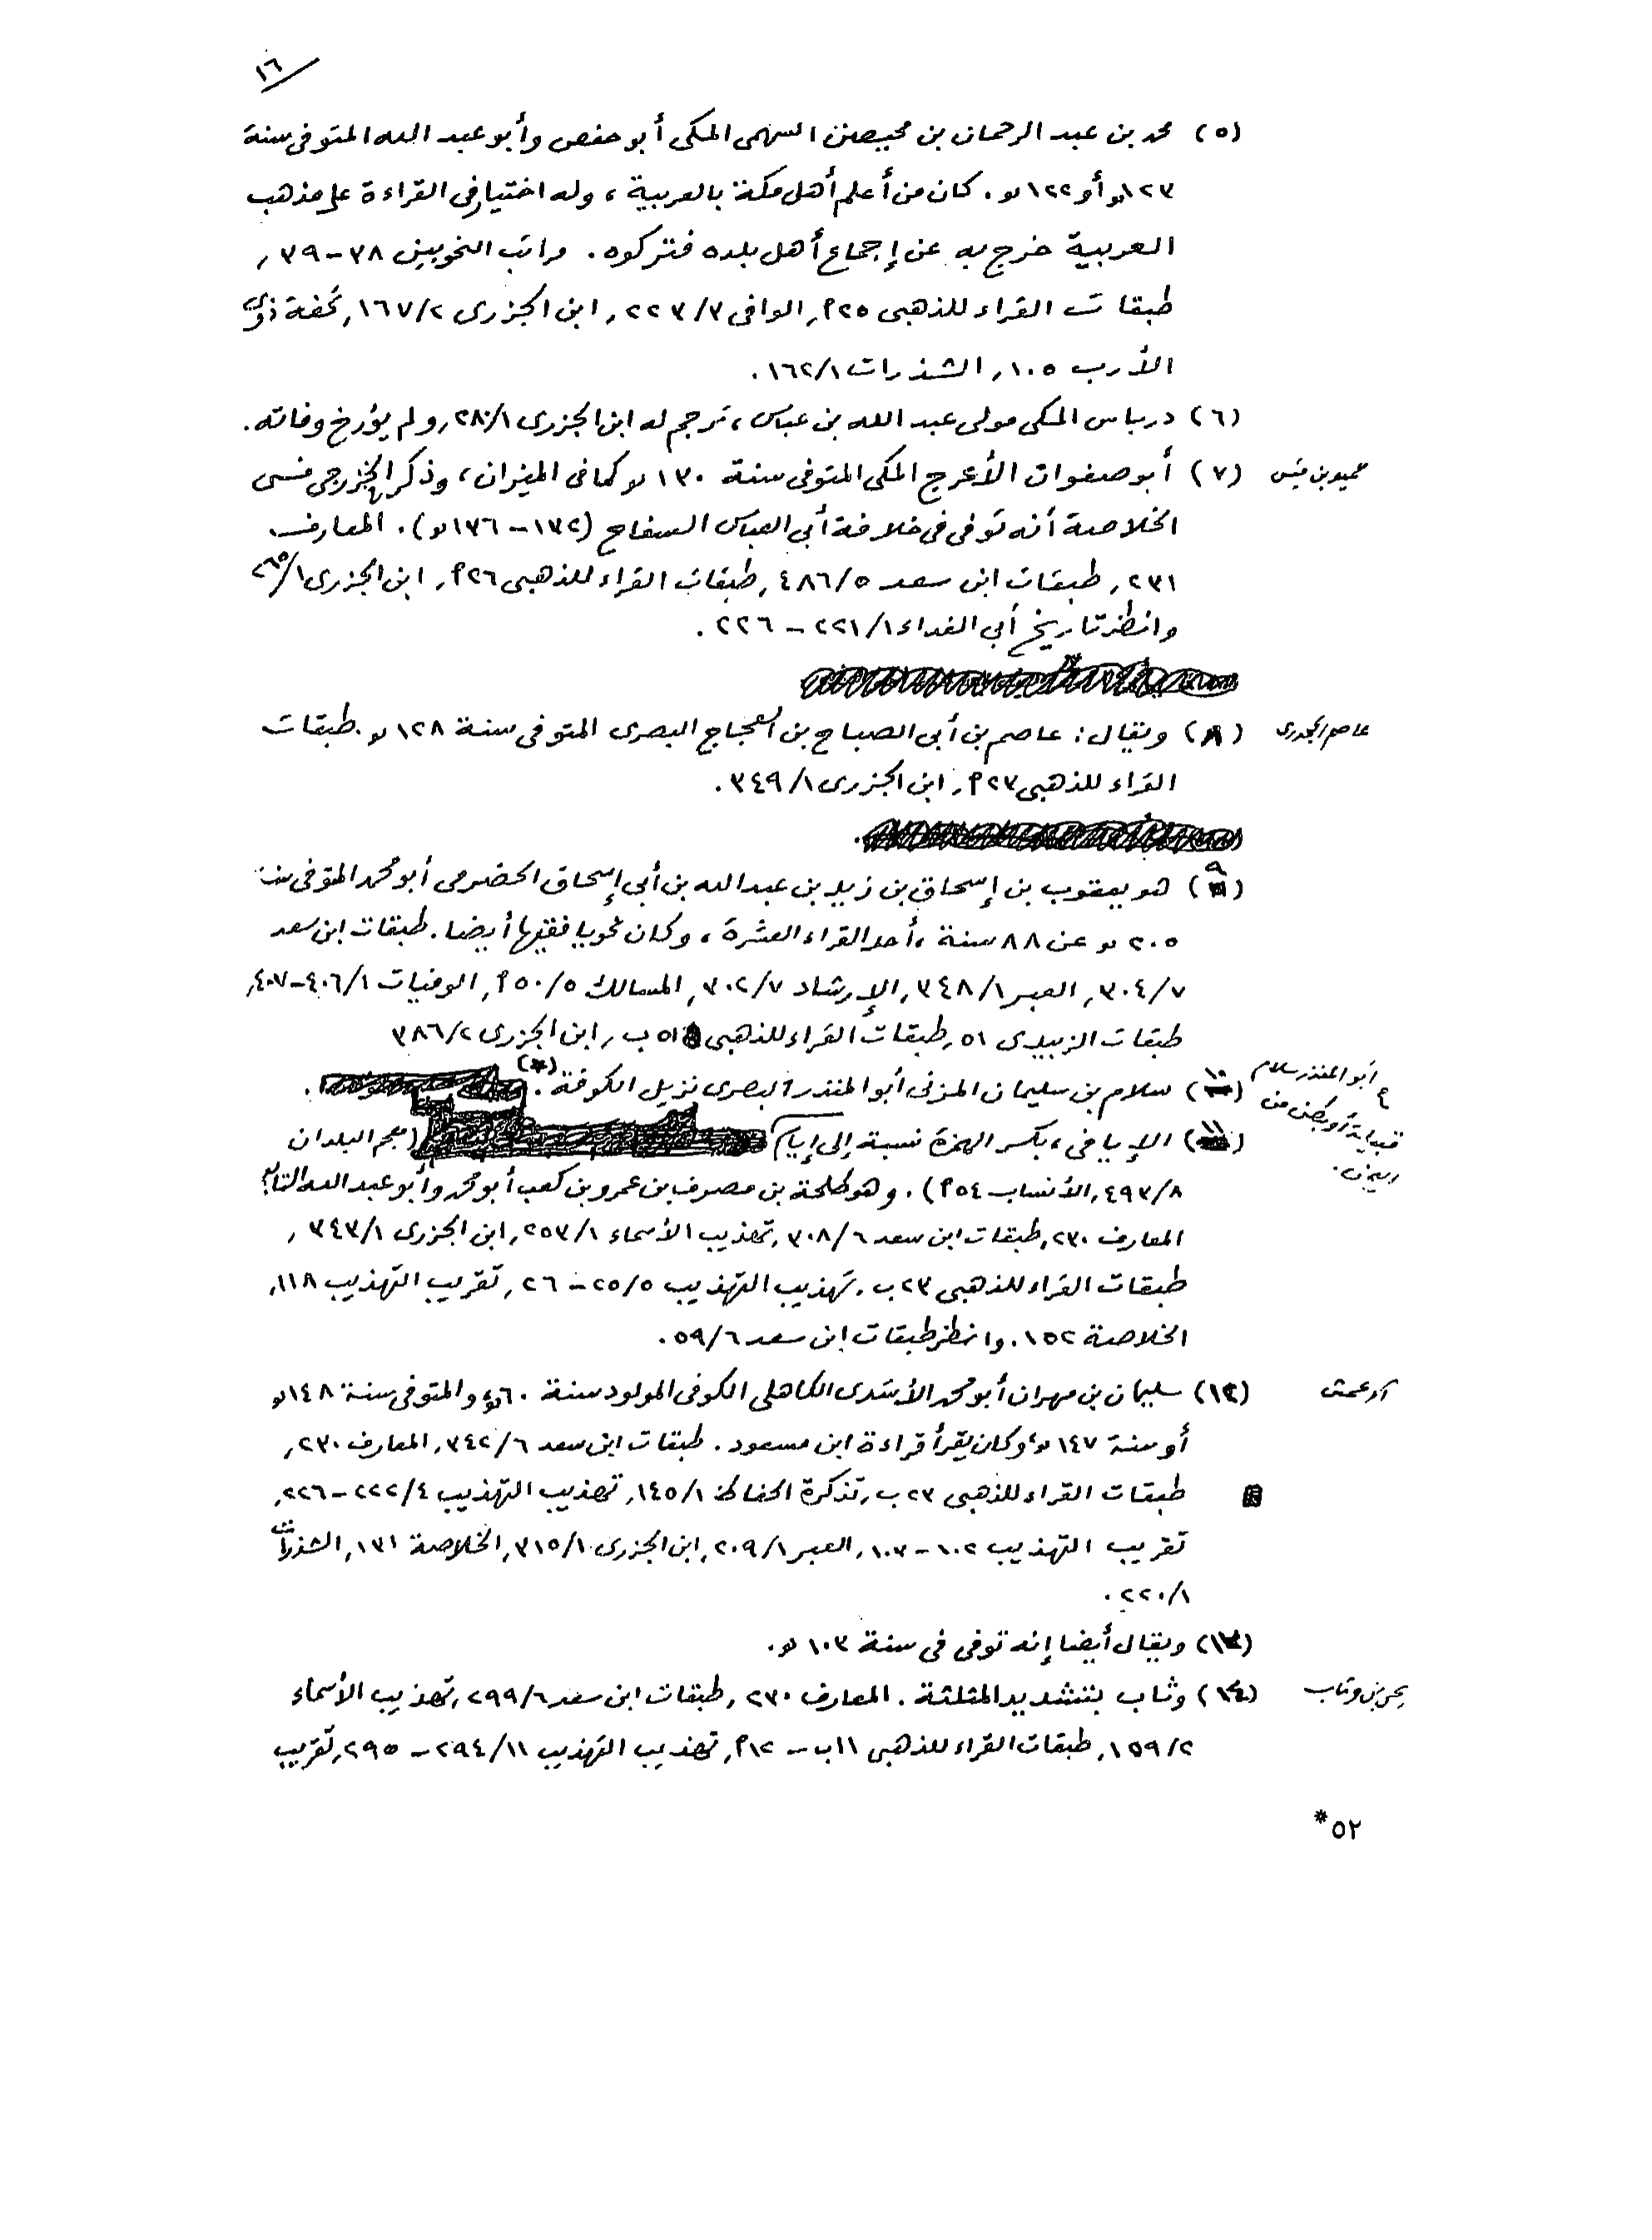 ١٦
(٥) محمد بن عبد الرحمان بن محيصن السهمى المكى أبو حفص وأبو عبد الله المتوفى سنة
١٢٣ھ أو ١٢٢ ھ. كان من أعلم أهل مكة بالعربية، وله اختيار فى القراءة على مذهب
العربية خرج به عن إجماع أهل بلده فتركوه. مراتب النحويين ٣٨-٣٩،
طبقات القراء للذهبى ٢٥م، الوافى ٢٢٣/٣، ابن الجزرى ١٦٧/٢، تحفة ذوى
الأرب ١٠٥، الشذرات ١٦٢/١.
(٦) درباس المكى مولى عبد الله بن عباس، ترجم له ابن الجزرى ٢٨٠/١، ولم يؤرخ وفاته.
حميد بن قيس (٧) أبو صفوان الأعرج المكى المتوفى سنة ١٣٠ ھ كما فى الميزان، وذكر الخزرجى فى
الخلاصة أنه توفى فى خلافة أبى العباس السفاح (١٣٢ - ١٣٦ ھ). المعارف
٢٣١، طبقات ابن سعد ٤٨٦/٥، طبقات القراء للذهبى ٢٦م، ابن الجزرى ٢٦٥/١
وانظر تاريخ أبى الفداء ٢٢١/١ - ٢٢٦.
عاصم الجحدرى (٨) ويقال: عاصم بن أبى الصباح بن العجاج البصرى المتوفى سنة ١٢٨ ھ. طبقات
القراء للذهبى ٢٣م، ابن الجزرى ٣٤٩/١.
(٩) هو يعقوب بن إسحاق بن زيد بن عبد الله بن أبى إسحاق الحضرمى أبو محمد المتوفى سنة
٢٠٥ ھ عن ٨٨ سنة، أحد القراء العشرة، وكان نحويا فقيها أيضا. طبقات ابن سعد
٣٠٤/٧، العبر ٣٤٨/١، الإرشاد ٣٠٢/٧، المسالك ٥٠/٥م، الوفيات ٤٠٦/١-٤٠٧،
طبقات الزبيدى ٥١، طبقات القراء للذهبى ٥١ ب، ابن الجزرى ٣٨٦/٢
أبو المنذر سلام (١٠) سلام بن سليمان المزنى أبو المنذر البصرى نزيل الكوفة (*).
قبيلة أو بطن من (١١) الإيامى، بكسر الهمزة نسبة إلى إيام (معجم البلدان
اليمن. ٤٩٣/٨، الأنساب ٥٤م). وهو طلحة بن مصرف بن عمرو بن كعب أبو محمد وأبو عبد الله التابعى
المعارف ٢٣٠، طبقات ابن سعد ٣٠٨/٦، تهذيب الأسماء ٢٥٣/١، ابن الجزرى ٣٤٣/١،
طبقات القراء للذهبى ٢٣ب، تهذيب التهذيب ٢٥/٥ - ٢٦، تقريب التهذيب ١١٨،
الخلاصة ١٥٢. وانظر طبقات ابن سعد ٥٩/٦.
الأعمش (١٢) سليمان بن مهران أبو محمد الأسدى الكاهلى الكوفى المولود سنة ٦٠ھ والمتوفى سنة ١٤٨ھ
أو سنة ١٤٧ ھ، وكان يقرأ قراءة ابن مسعود. طبقات ابن سعد ٣٤٢/٦، المعارف ٢٣٠،
طبقات القراء للذهبى ٢٣ ب، تذكرة الحفاظ ١٤٥/١، تهذيب التهذيب ٢٢٢/٤ - ٢٢٦،
تقريب التهذيب ١٠٢ - ١٠٣، العبر ٢٠٩/١، ابن الجزرى ٣١٥/١، الخلاصة ١٣١، الشذرات
٢٢٠/١.
(١٣) ويقال أيضا إنه توفى فى سنة ١٠٣ ھ.
يحيى بن وثاب (١٤) وثاب بتشديد المثلثة. المعارف ٢٣٠، طبقات ابن سعد ٢٩٩/٦، تهذيب الأسماء
١٥٩/٢، طبقات القراء للذهبى ١١ب - ١٢م، تهذيب التهذيب ٢٩٤/١١ - ٢٩٥، تقريب
٥٢*